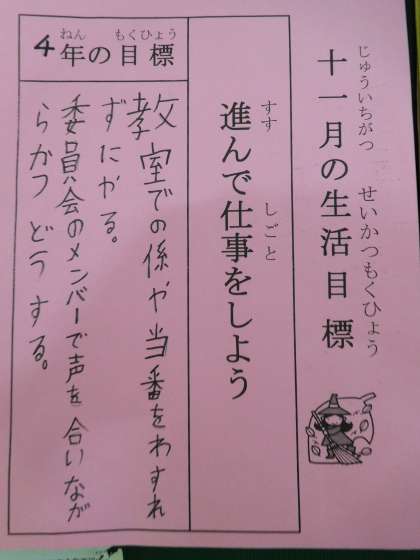 十一月の生活目標
じゅういちがつ せいかつもくひょう
進んで仕事をしよう
すす しごと
4年の目標
ねん もくひょう
教室での係や当番をわすれ
ずにやる。
委員会のメンバーで声を合いなが
らかつどうする。